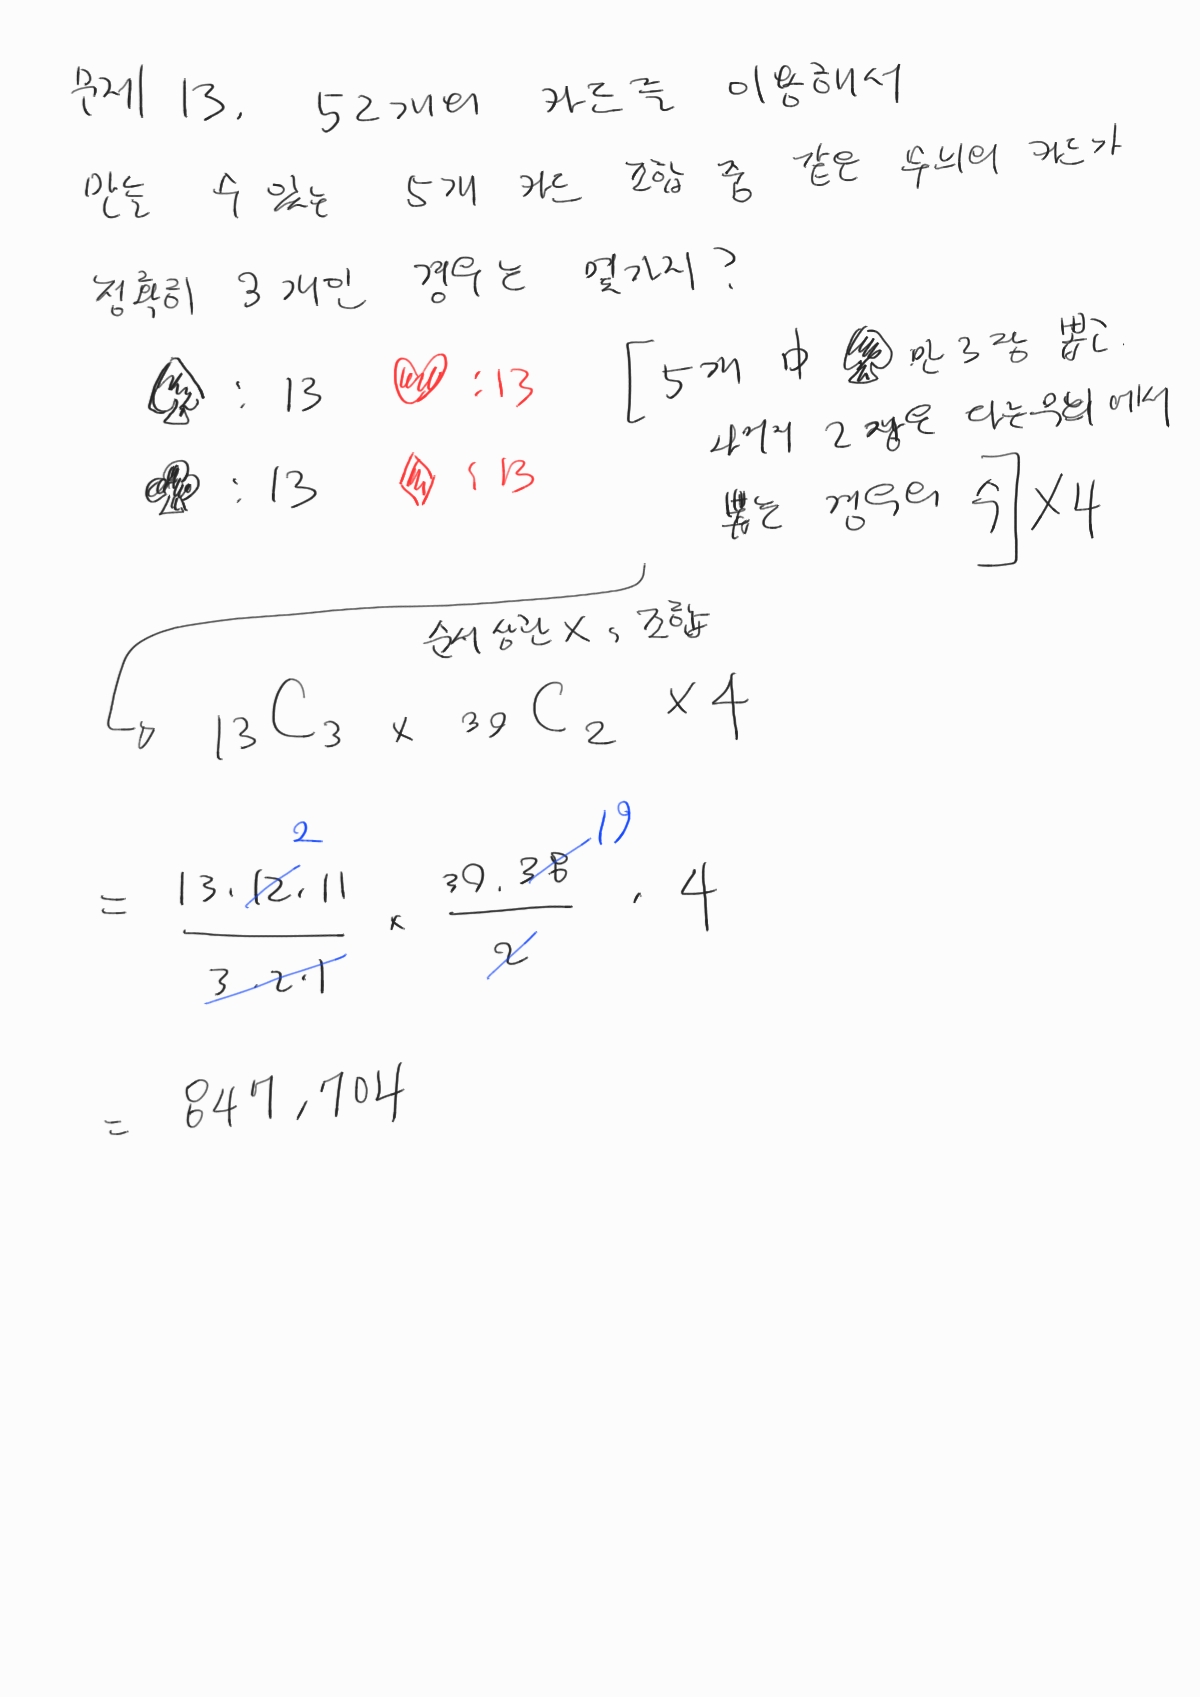 문제 13. 52개의 카드를 이용해서
만들 수 있는 5개 카드 조합 중 같은 무늬의 카드가
정확히 3개인 경우는 몇가지?
: 13 : 13 [5개 中 만 3장 뽑고
나머지 2장은 다른무늬에서
: 13 : 13
뽑는 경우의 수] × 4
순서 상관 X, 조합
13C3 × 39C2 × 4
2 19
= 13.12.11 × 39.38 . 4
3.2.1 2
= 847,704